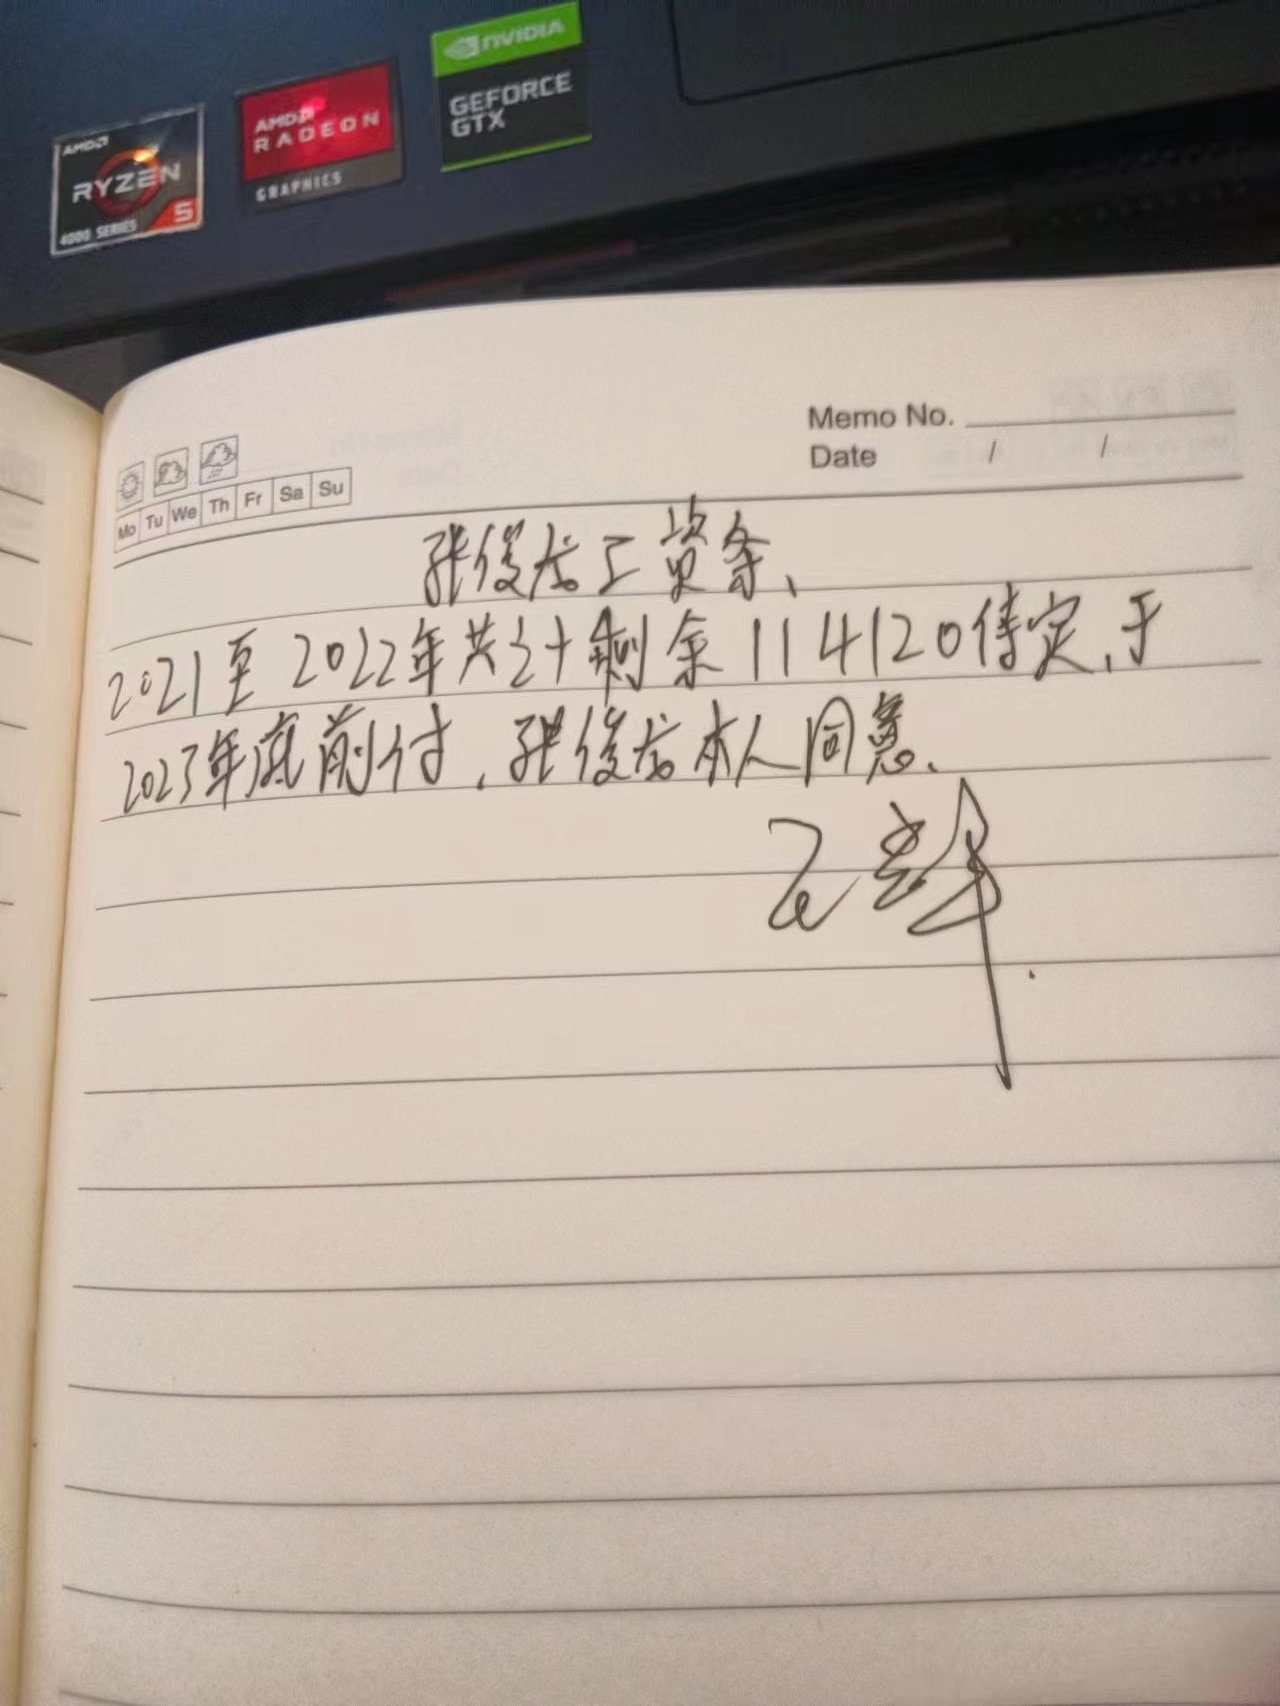 AMD
RYZEN
5
4000 SERIES
AMD
RADEON
GRAPHICS
NVIDIA
GEFORCE
GTX
Memo No.
Date / /
Mo Tu We Th Fr Sa Su
张俊龙工资条、
2021至2022年共计剩余114120待定、于
2023年底前付，张俊龙本人同意、